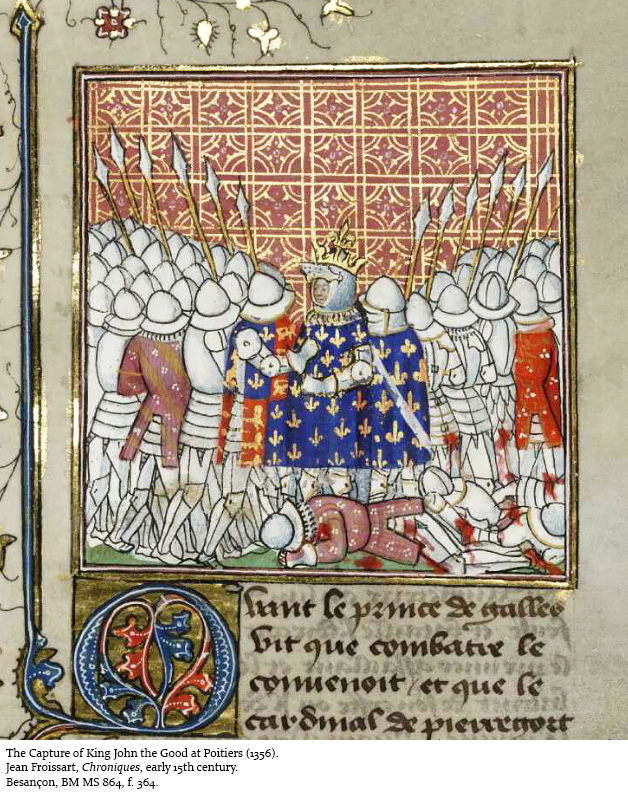 Quant le prince de galles
vit que combatre le
conuenoit / et que le
cardinal de pierregort
The Capture of King John the Good at Poitiers (1356).
Jean Froissart, Chroniques, early 15th century.
Besançon, BM MS 864, f. 364.